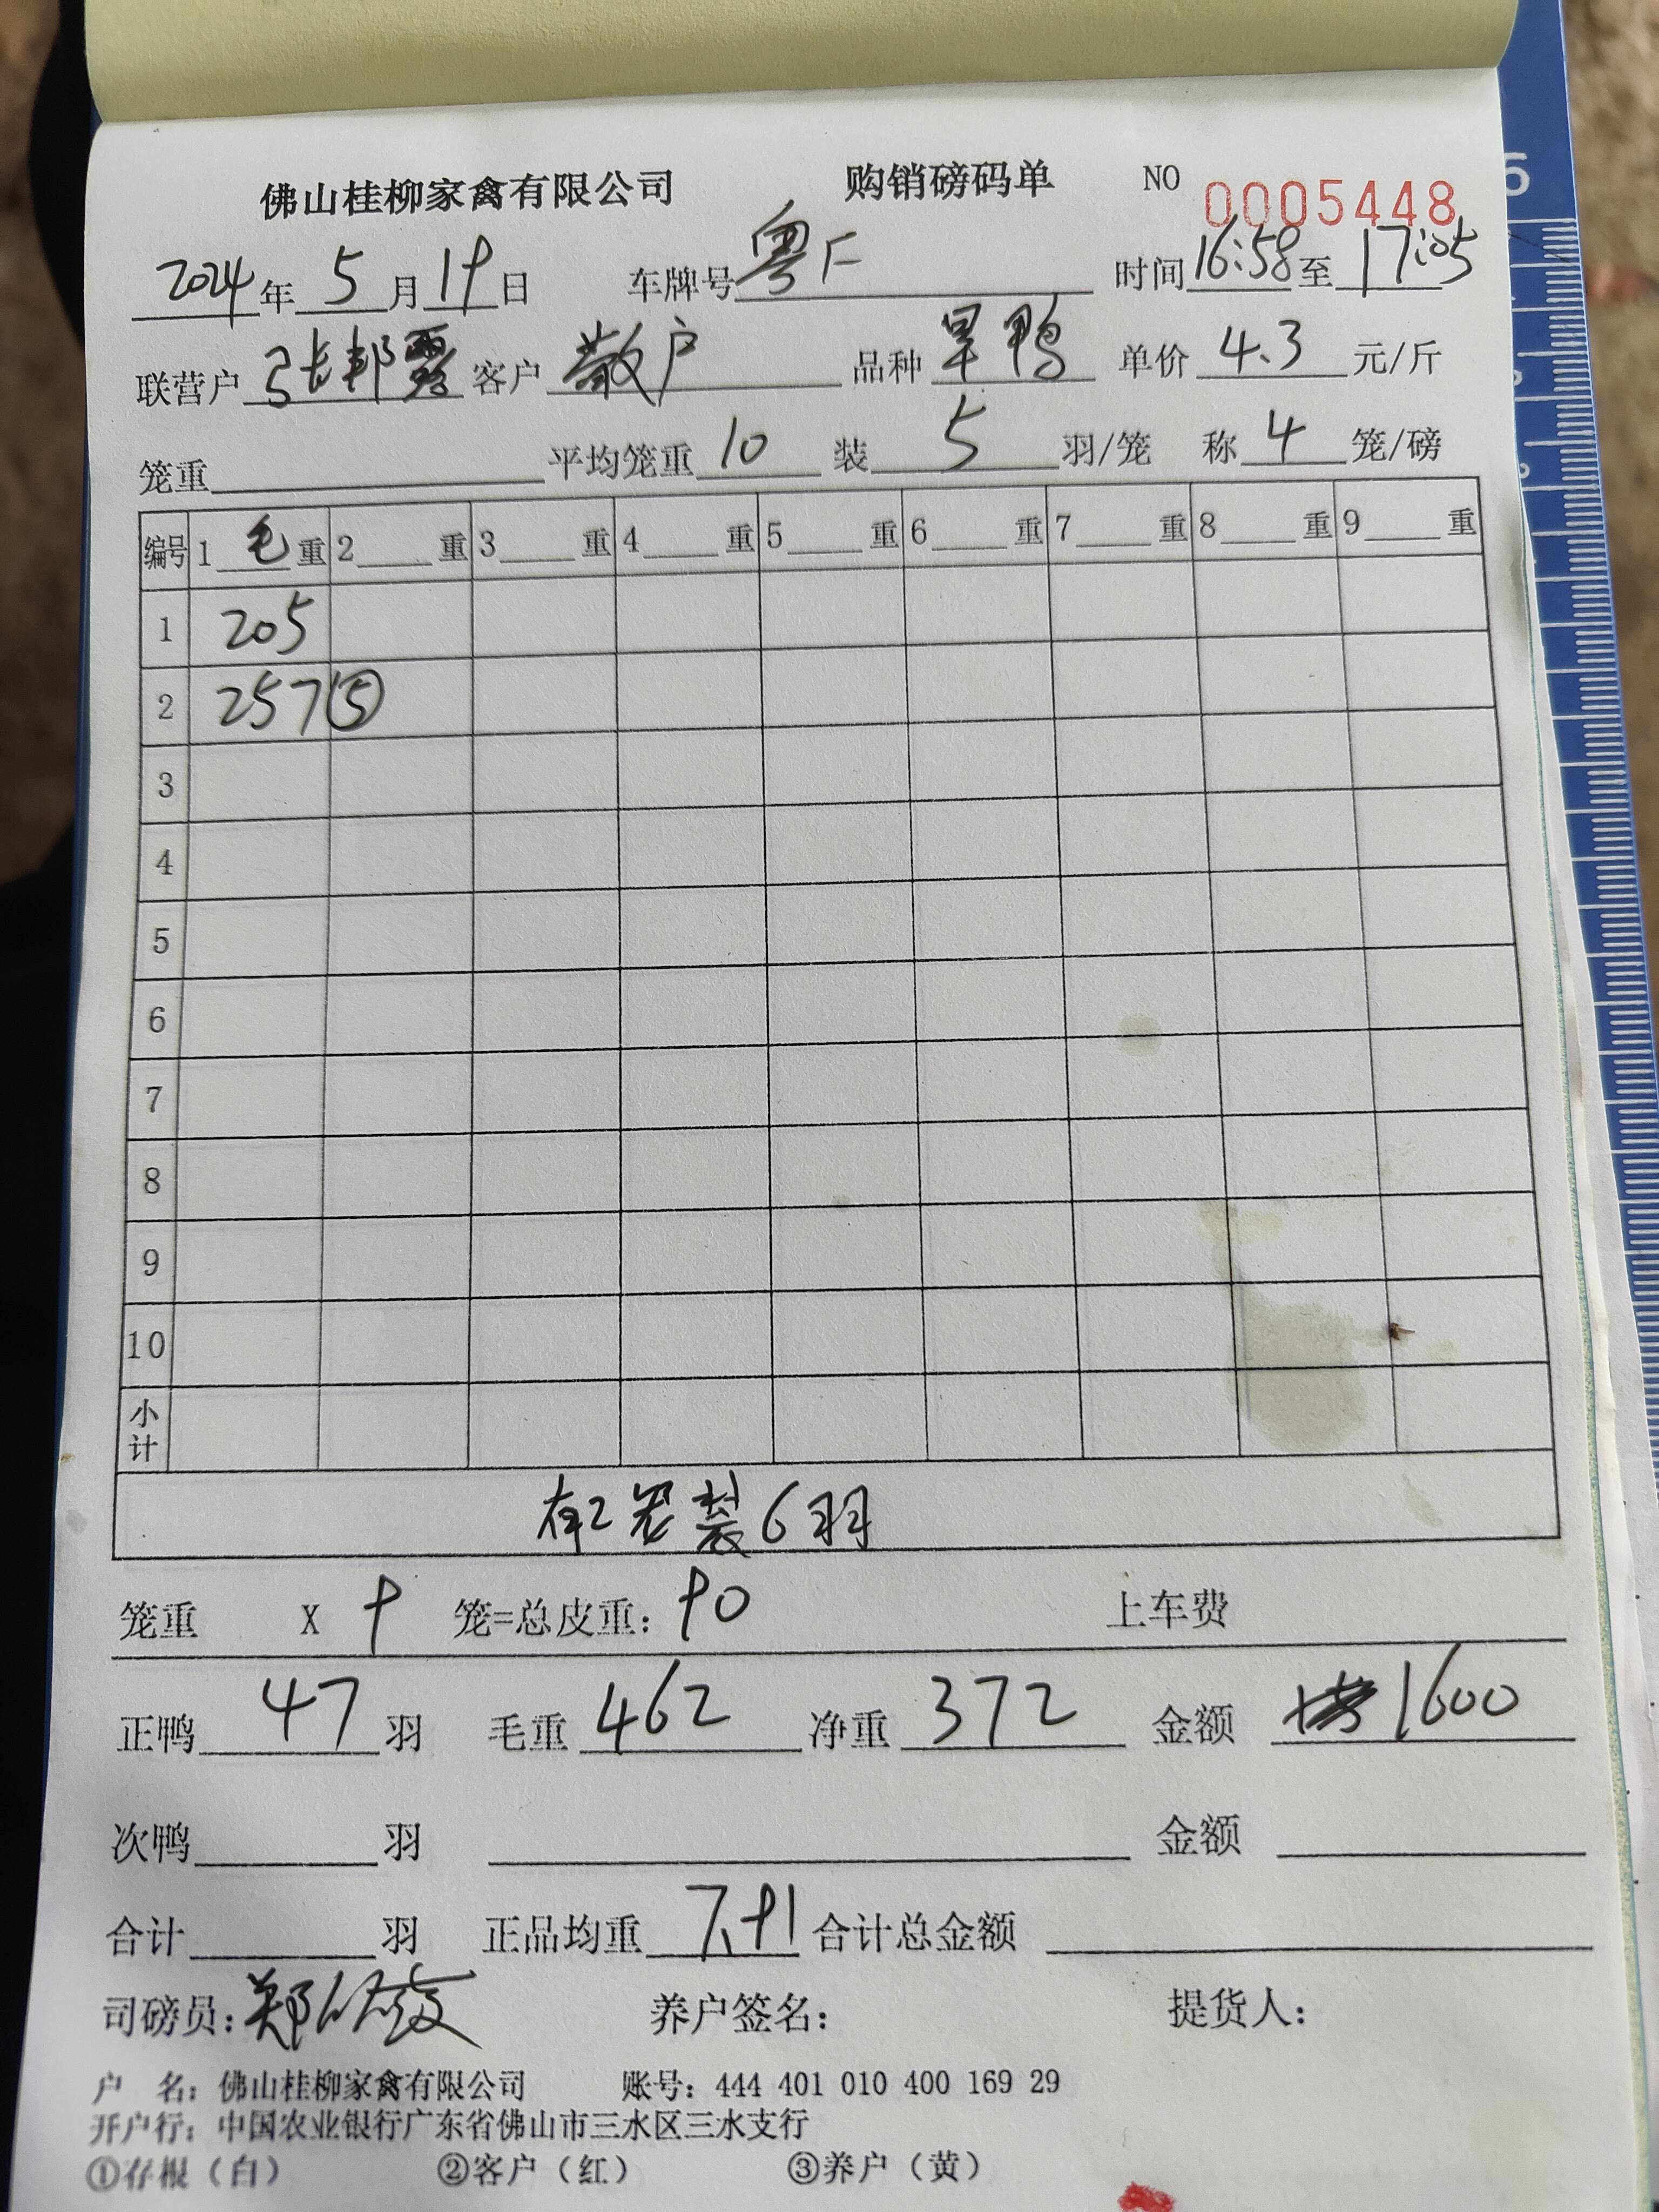 佛山桂柳家禽有限公司 购销磅码单 NO 0005448
2024年 5月 19日 车牌号 粤F 时间 16:58 至 17:05
联营户 张邦霞 客户 散户 品种 旱鸭 单价 4.3 元/斤
笼重 平均笼重 10 装 5 羽/笼 称 4 笼/磅
编号 1 毛 重 2 重 3 重 4 重 5 重 6 重 7 重 8 重 9 重
1 205
2 257 ⑤
3
4
5
6
7
8
9
10
小计
有2笼装6羽
笼重 X 9 笼=总皮重: 90 上车费
正鸭 47 羽 毛重 462 净重 372 金额 1600
次鸭 羽 金额
合计 羽 正品均重 7.91 合计总金额
司磅员: 郑 养户签名: 提货人:
户 名: 佛山桂柳家禽有限公司 账号: 444 401 010 400 169 29
开户行: 中国农业银行广东省佛山市三水区三水支行
①存根（白） ②客户（红） ③养户（黄）